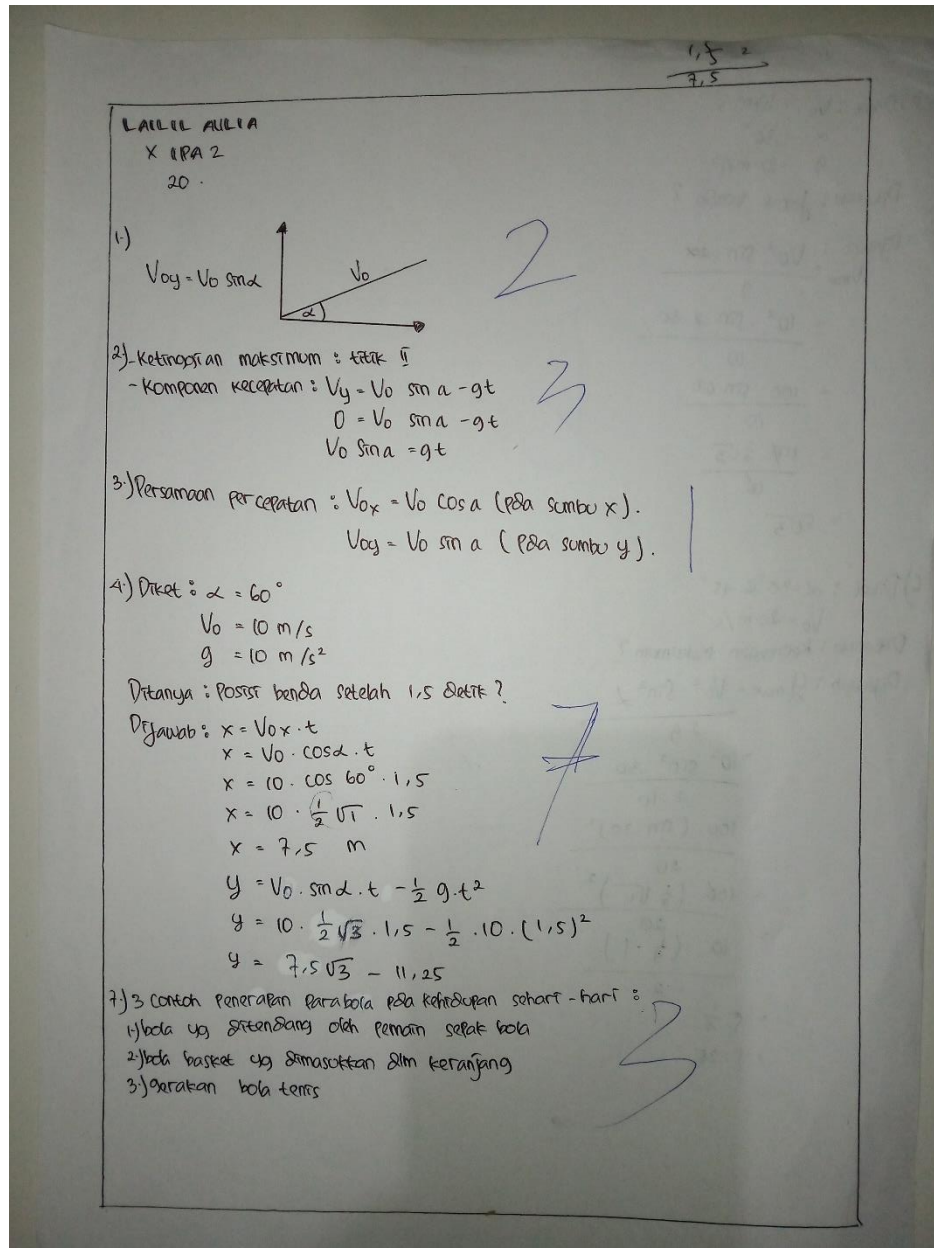 1,5 2
7,5
LAILIL AULIA
X IPA 2
20.
1.)
Voy = Vo sinα
Vo
α
2.) - Ketinggian maksimum : titik II
- Komponen kecepatan : Vy = Vo sin a - gt
0 = Vo sin a - gt
Vo sin a = gt
2
3
3.) Persamaan percepatan : Vox = Vo cos a (pda sumbu x).
Voy = Vo sin a (pda sumbu y).
1
4.) Diket : α = 60°
Vo = 10 m/s
g = 10 m/s²
Ditanya : Posisi benda setelah 1,5 detik ?
Dijawab : x = Vox . t
x = Vo . cosα . t
x = 10 . cos 60° . 1,5
x = 10 . 1/2 √1 . 1,5
x = 7,5 m
7
y = Vo . sinα . t - 1/2 g.t²
y = 10 . 1/2 √3 . 1,5 - 1/2 . 10 . (1,5)²
y = 7,5 √3 - 11,25
7.) 3 Contoh penerapan parabola pda kehidupan sehari - hari :
1.) bola yg ditendang oleh pemain sepak bola
2.) bola basket yg dimasukkan dlm keranjang
3.) gerakan bola tenis
3